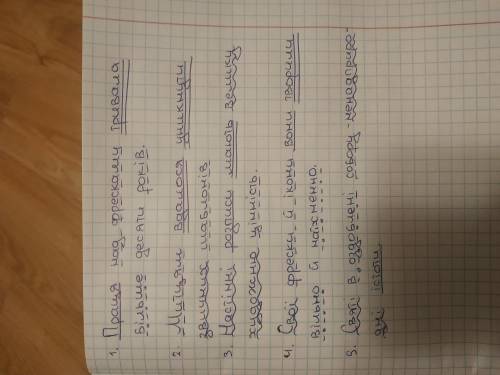 1. Праця над фресками тривала
більше десяти років.
2. Митцям вдалося уникнути
звичних шаблонів
3. Настінні розписи мають велику
художню цінність.
4. Свої фрески й ікони вони творили
вільно й натхненно.
5. Святі в оздоблені собору -
дні істоти